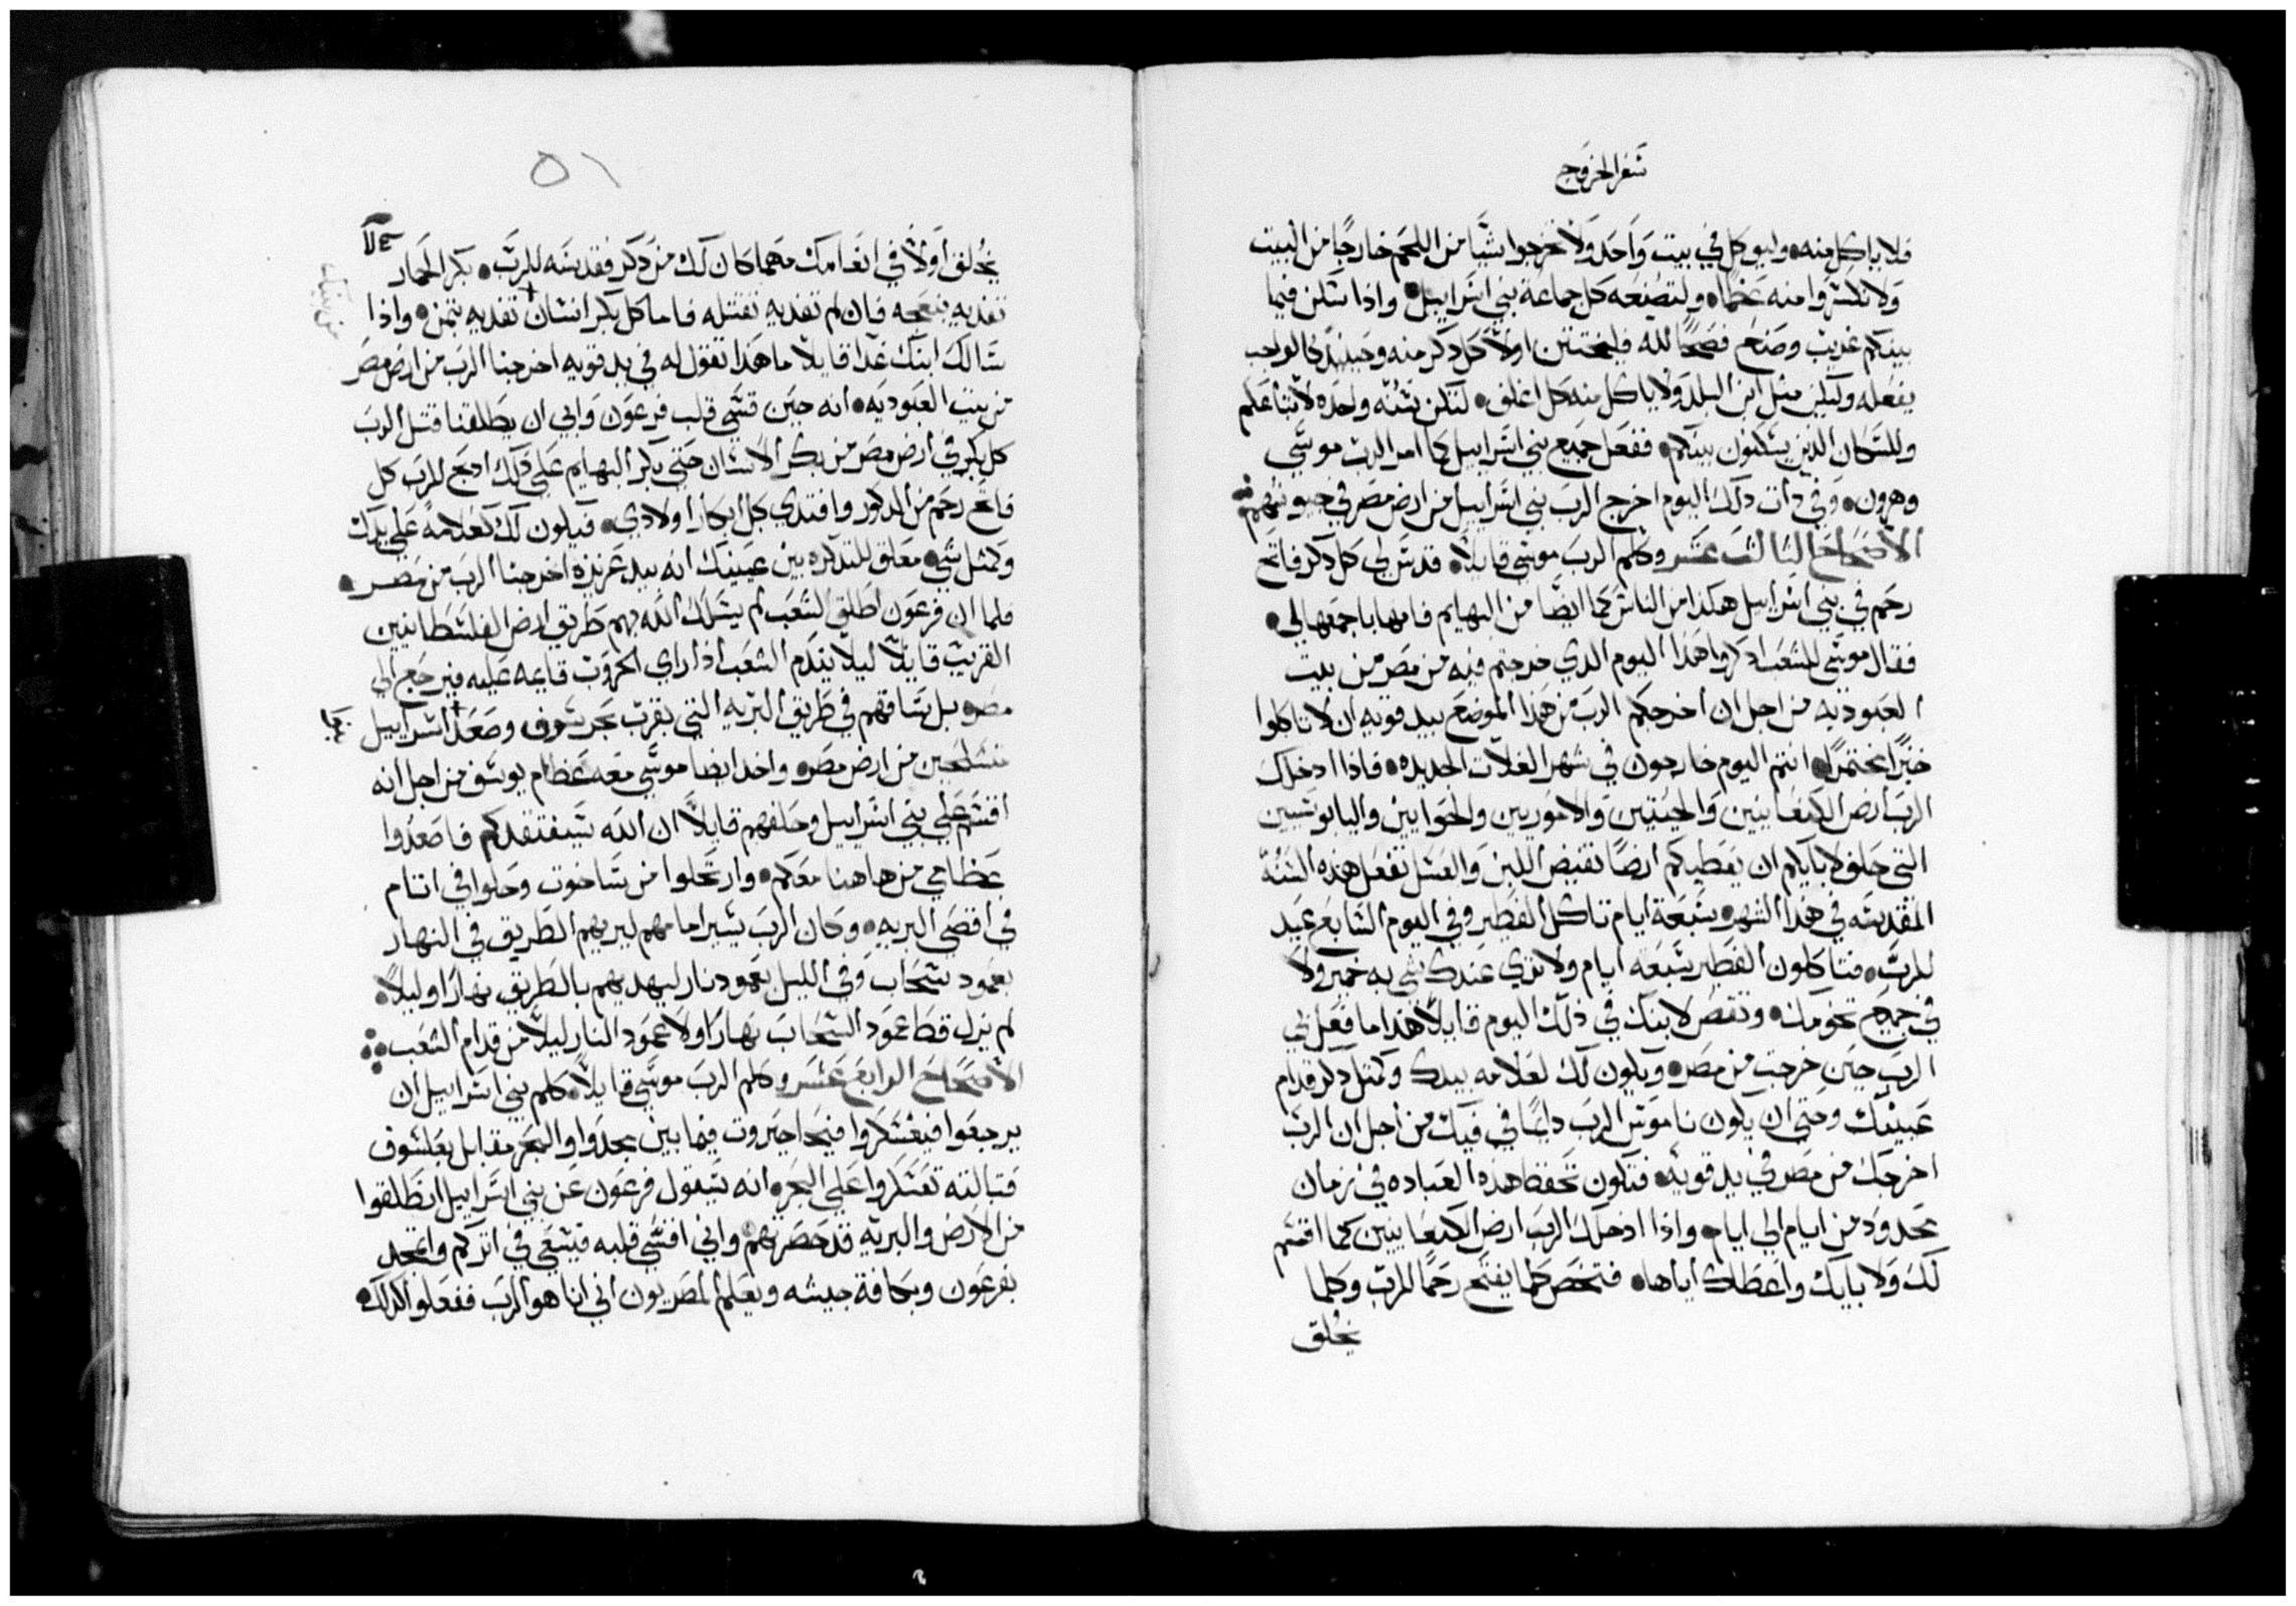 سفر الخروج
فلا ياكل منه • وليوكل في بيت واحد ولا تخرجوا شيا من اللحم خارجا من البيت
ولا تكسروا منه عظما • ولتصنعه كل جماعة بني اسراييل • واذا سكن فيما
بينكم غريب وصنع فصحا لله فليختتن اولا كل ذكر منه وحينيذ كالواجب
يفعله وليكن مثل ابن البلد ولا ياكل منه كل اغلف • لتكن سنه واحده لابنايكم
وللسكان الذين يسكنون بينكم • ففعل جميع بني اسراييل كما امر الرب موسي
وهرون • وفي ذات ذلك اليوم اخرج الرب بني اسراييل من ارض مصر في جيوشهم
الاصحاح الثالث عشر وكلم الرب موسي قايلا • قدس لي كل ذكر فاتح
رحم في بني اسراييل هكذا من الناس كما ايضا من البهايم فانها باجمعها لي •
فقال موسي للشعب اذكروا هذا اليوم الذي خرجتم فيه من مصر من بيت
العبوديه من اجل ان اخرجكم الرب من هذا الموضع بيد قويه ان لا تاكلوا
خبزا مختمرا • انتم اليوم خارجون في شهر الغلات الجديده • فاذا ادخلك
الرب ارض الكنعانيين والحيثيين والاموريين والحوايين واليابوسيين
التي حلف لابايكم ان يعطيكم ارضا تفيض اللبن والعسل تفعل هذه السنه
المقدسه في هذا الشهر • سبعة ايام تاكل الفطير وفي اليوم السابع عيد
للرب • فتاكلون الفطير سبعه ايام ولا يري عندك شي به خمير ولا
في جميع تخومك • وتقص لابنك في ذلك اليوم قايلا هذا ما فعل لي
الرب حين خرجت من مصر • ويكون لك لعلامه بيدك وكمثل ذكر قدام
عينيك وحتي ان يكون ناموس الرب دايما في فيك من اجل ان الرب
اخرجك من مصر في يد قويه • فتكون تحفظ هذه العباده في زمان
محدود من ايام الي ايام • واذا ادخلك الرب ارض الكنعانيين كما اقسم
لك ولابايك واعطاك اياها • فتخص كلما يفتح رحما للرب وكلما
يخلق
٥١
يخلق اولا في انعامك مهما كان لك من ذكر فقدسه للرب • بكر الحمار
تفديه بنعجه فان لم تفديه تقتله فاما كل بكر انسان تفديه بثمن • واذا
سالك ابنك غدا قايلا ما هذا تقول له في يد قويه اخرجنا الرب من ارض مصر
من بيت العبوديه • انه حين قسي قلب فرعون وابي ان يطلقنا قتل الرب
كل بكر في ارض مصر من بكر الانسان حتي بكر البهايم علي ذلك اذبح للرب كل
فاتح رحم من الذكور وافتدي كل ابكار اولادي • فيكون لك كعلامة علي يدك
وكمثل شي معلق للتذكره بين عينيك انه بيد عزيزه اخرجنا الرب من مصر •
فلما ان فرعون اطلق الشعب لم يسلك الله بهم طريق ارض الفلسطانيين
القريب قايلا ليلا يندم الشعب اذا راي الحروب قايمه عليه فيرجع الي
مصر • بل ساقهم في طريق البريه التي بقرب بحر سوف وصعد اسراييل
متسلحين من ارض مصر • واخذ ايضا موسي معه عظام يوسف من اجل انه
اقسم علي بني اسراييل وحلفهم قايلا ان الله سيفتقدكم فاصعدوا
عظامي من هاهنا معكم • وارتحلوا من ساخوت وحلوا في اتام
في اقصي البريه • وكان الرب يسير امامهم ليريهم الطريق في النهار
بعمود سحاب وفي الليل بعمود نار ليهديهم بالطريق نهارا وليلا •
لم يزل قط عمود السحاب نهارا ولا عمود النار ليلا من قدام الشعب
الاصحاح الرابع عشر وكلم الرب موسي قايلا • كلم بني اسراييل ان
يرجعوا فيعسكروا فيحاحيروت فيما بين مجدوا والبحر مقابل بعلسوف
قبالته تعسكروا علي البحر • انه سيقول فرعون عن بني اسراييل انطلقوا
من الارض والبريه قد حصرتهم • واني اقسي قلبه فيسعي في اثركم واتمجد
بفرعون وبكافة جيشه ويعلم المصريون اني انا هو الرب ففعلوا كذلك •